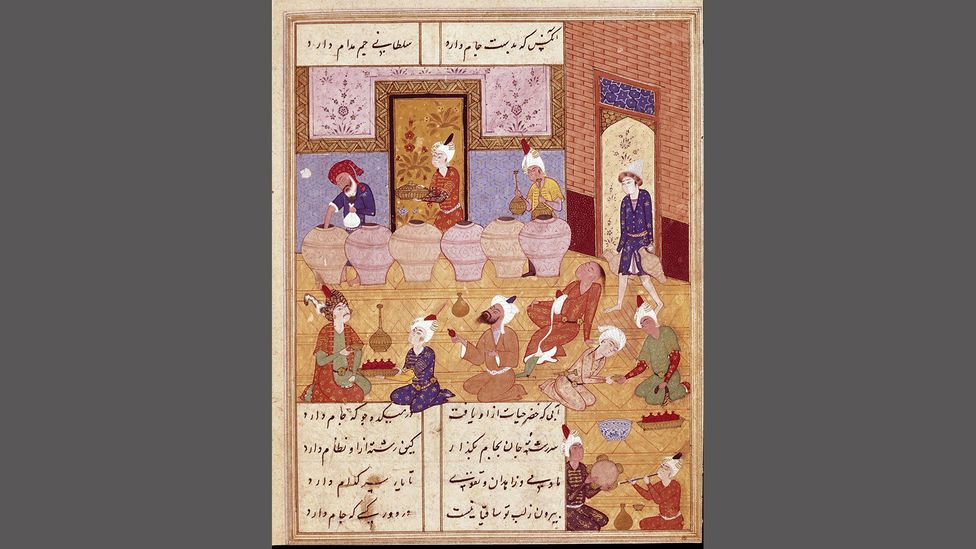 آنکس که بدست جام دارد سلطانی جم مدام دارد
آبی که خضر حیات ازو یافت در میکده جو که جام دارد
سررشته جان بجام بگذار کین رشته ازو نظام دارد
ما و می و زاهدان و تقوی تا یار سر کدام دارد
بیرون زلب تو ساقیا نیست در دور کسی که جام دارد